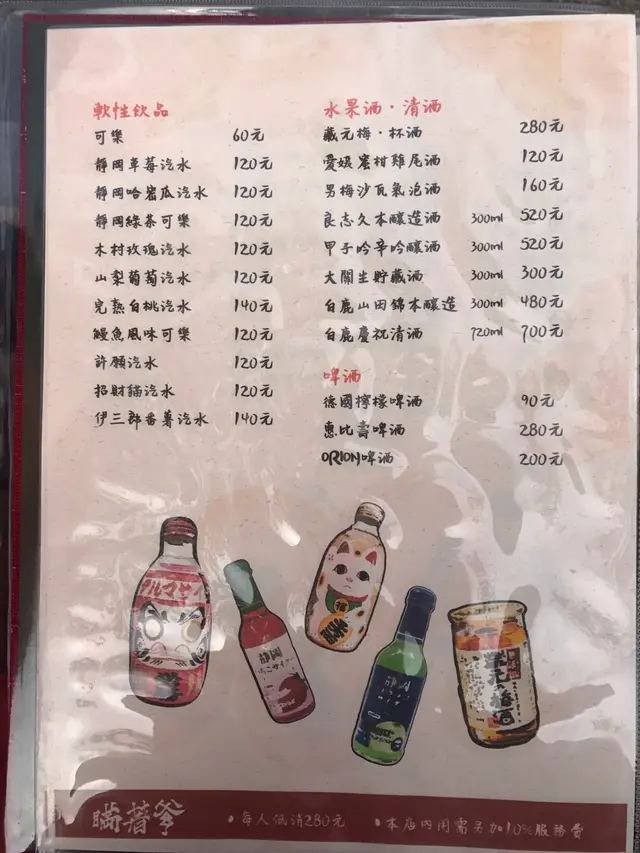 軟性飲品
可樂 60元
靜岡草莓汽水 120元
靜岡哈密瓜汽水 120元
靜岡綠茶可樂 120元
木村玫瑰汽水 120元
山梨葡萄汽水 120元
完熟白桃汽水 140元
鰻魚風味可樂 120元
許願汽水 120元
招財貓汽水 120元
伊三郎番薯汽水 140元
水果酒・清酒
藏元梅・杯酒 280元
愛媛蜜柑雞尾酒 120元
男梅沙瓦氣泡酒 160元
良志久本釀造酒 300ml 520元
甲子吟辛吟釀酒 300ml 520元
大關生貯藏酒 300ml 300元
白鹿山田錦本釀造 300ml 480元
白鹿慶祝清酒 720ml 700元
啤酒
德國檸檬啤酒 90元
惠比壽啤酒 280元
ORION啤酒 200元
靜岡
瞞著爹
•每人低消280元 •本店內用需另加10%服務費